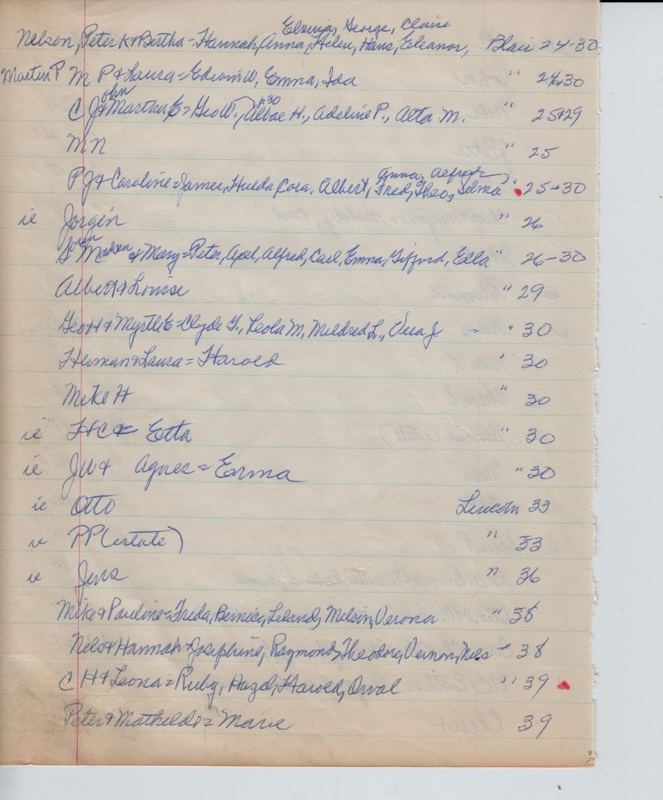 Elvenia, George, Claire
Nelson, Peter K & Bertha = Hannah, Anna, Helen, Hans, Eleanor, Blair 24-30
Martin P M P & Laura = Edwin W, Emma, Ida " 24&30
John +30
C J & Martha E = Geo W., Albae H., Adeline P., Alta M. " 25&29
M N " 25
Anna, Alfred
P J & Caroline = James, Hulda Cora, Albert, Fred, Theo, Selma " 25&30
ie Jorgen " 26
Soren
S Madsen & Mary = Peter, Axel, Alfred, Carl, Emma, Gifford, Ella " 26-30
Albert & Louise " 29
Geo H & Myrtle E = Clyde G., Leola M, Mildred L., Vera J " 30
Herman & Laura = Harold " 30
Mike H " 30
ie H C & Etta " 30
ie J W & Agnes = Erma " 30
ie Otto Lincoln 33
ie P P (estate) " 33
ie Jens " 36
Mike & Pauline = Freda, Bernice, Leland, Melvin, Verona " 38
Nels & Hannah = Josephine, Raymond, Theodore, Vernon, Nels - 38
C H & Leona = Ruby, Hazel, Harold, Orval " 39
Peter & Mathilde = Marie 39